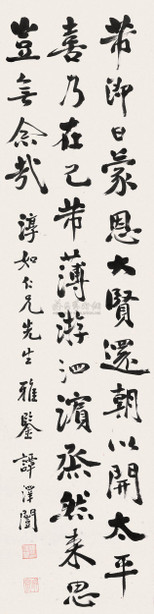 芾御日蒙恩大賢還朝以開太平
喜乃在己芾薄游泗濱烝然来思
豈無念哉
淳如仁兄先生雅鑒譚澤闓